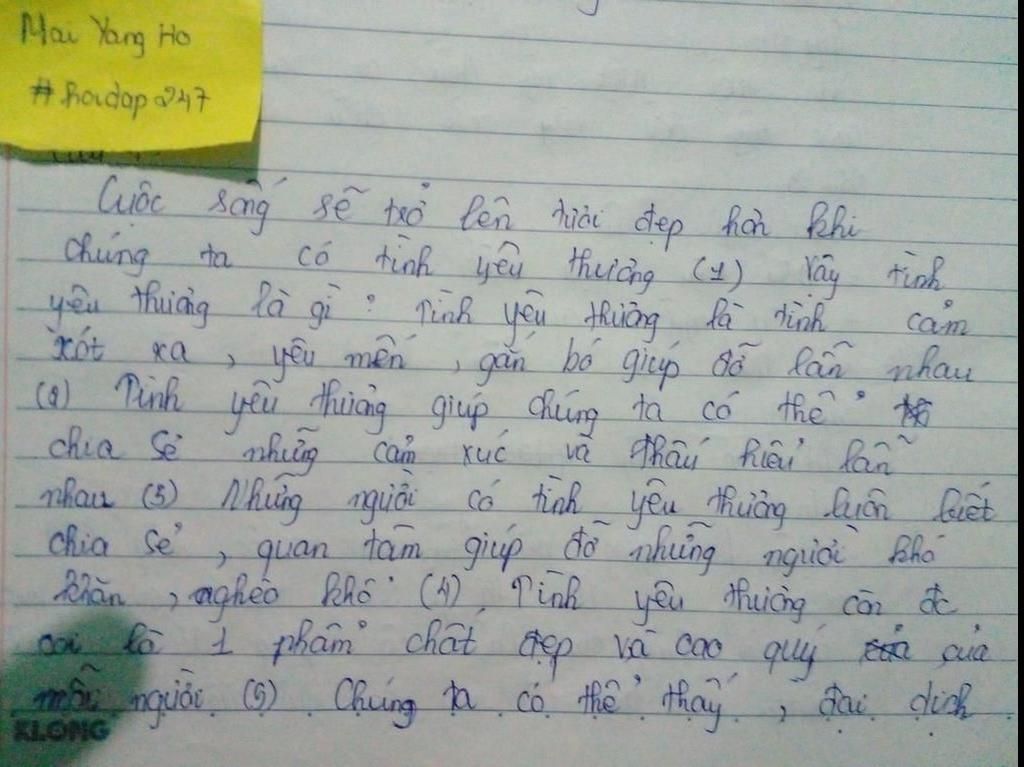 Mai Yang Ho
#hoidap247
Cuộc sống sẽ trở lên tươi đẹp hơn khi
chúng ta có tình yêu thương (1) Vậy tình
yêu thương là gì? Tình yêu thương là tình cảm
xót xa, yêu mến, gắn bó giúp đỡ lẫn nhau
(2) Tình yêu thương giúp chúng ta có thể
chia sẻ những cảm xúc và thấu hiểu lẫn
nhau (3) Những người có tình yêu thương luôn biết
chia sẻ, quan tâm giúp đỡ những người khó
khăn, nghèo khổ (4) Tình yêu thương còn đc
coi là 1 phẩm chất đẹp và cao quý của
mỗi người (5) Chúng ta có thể thấy, đại dịch
XLONG